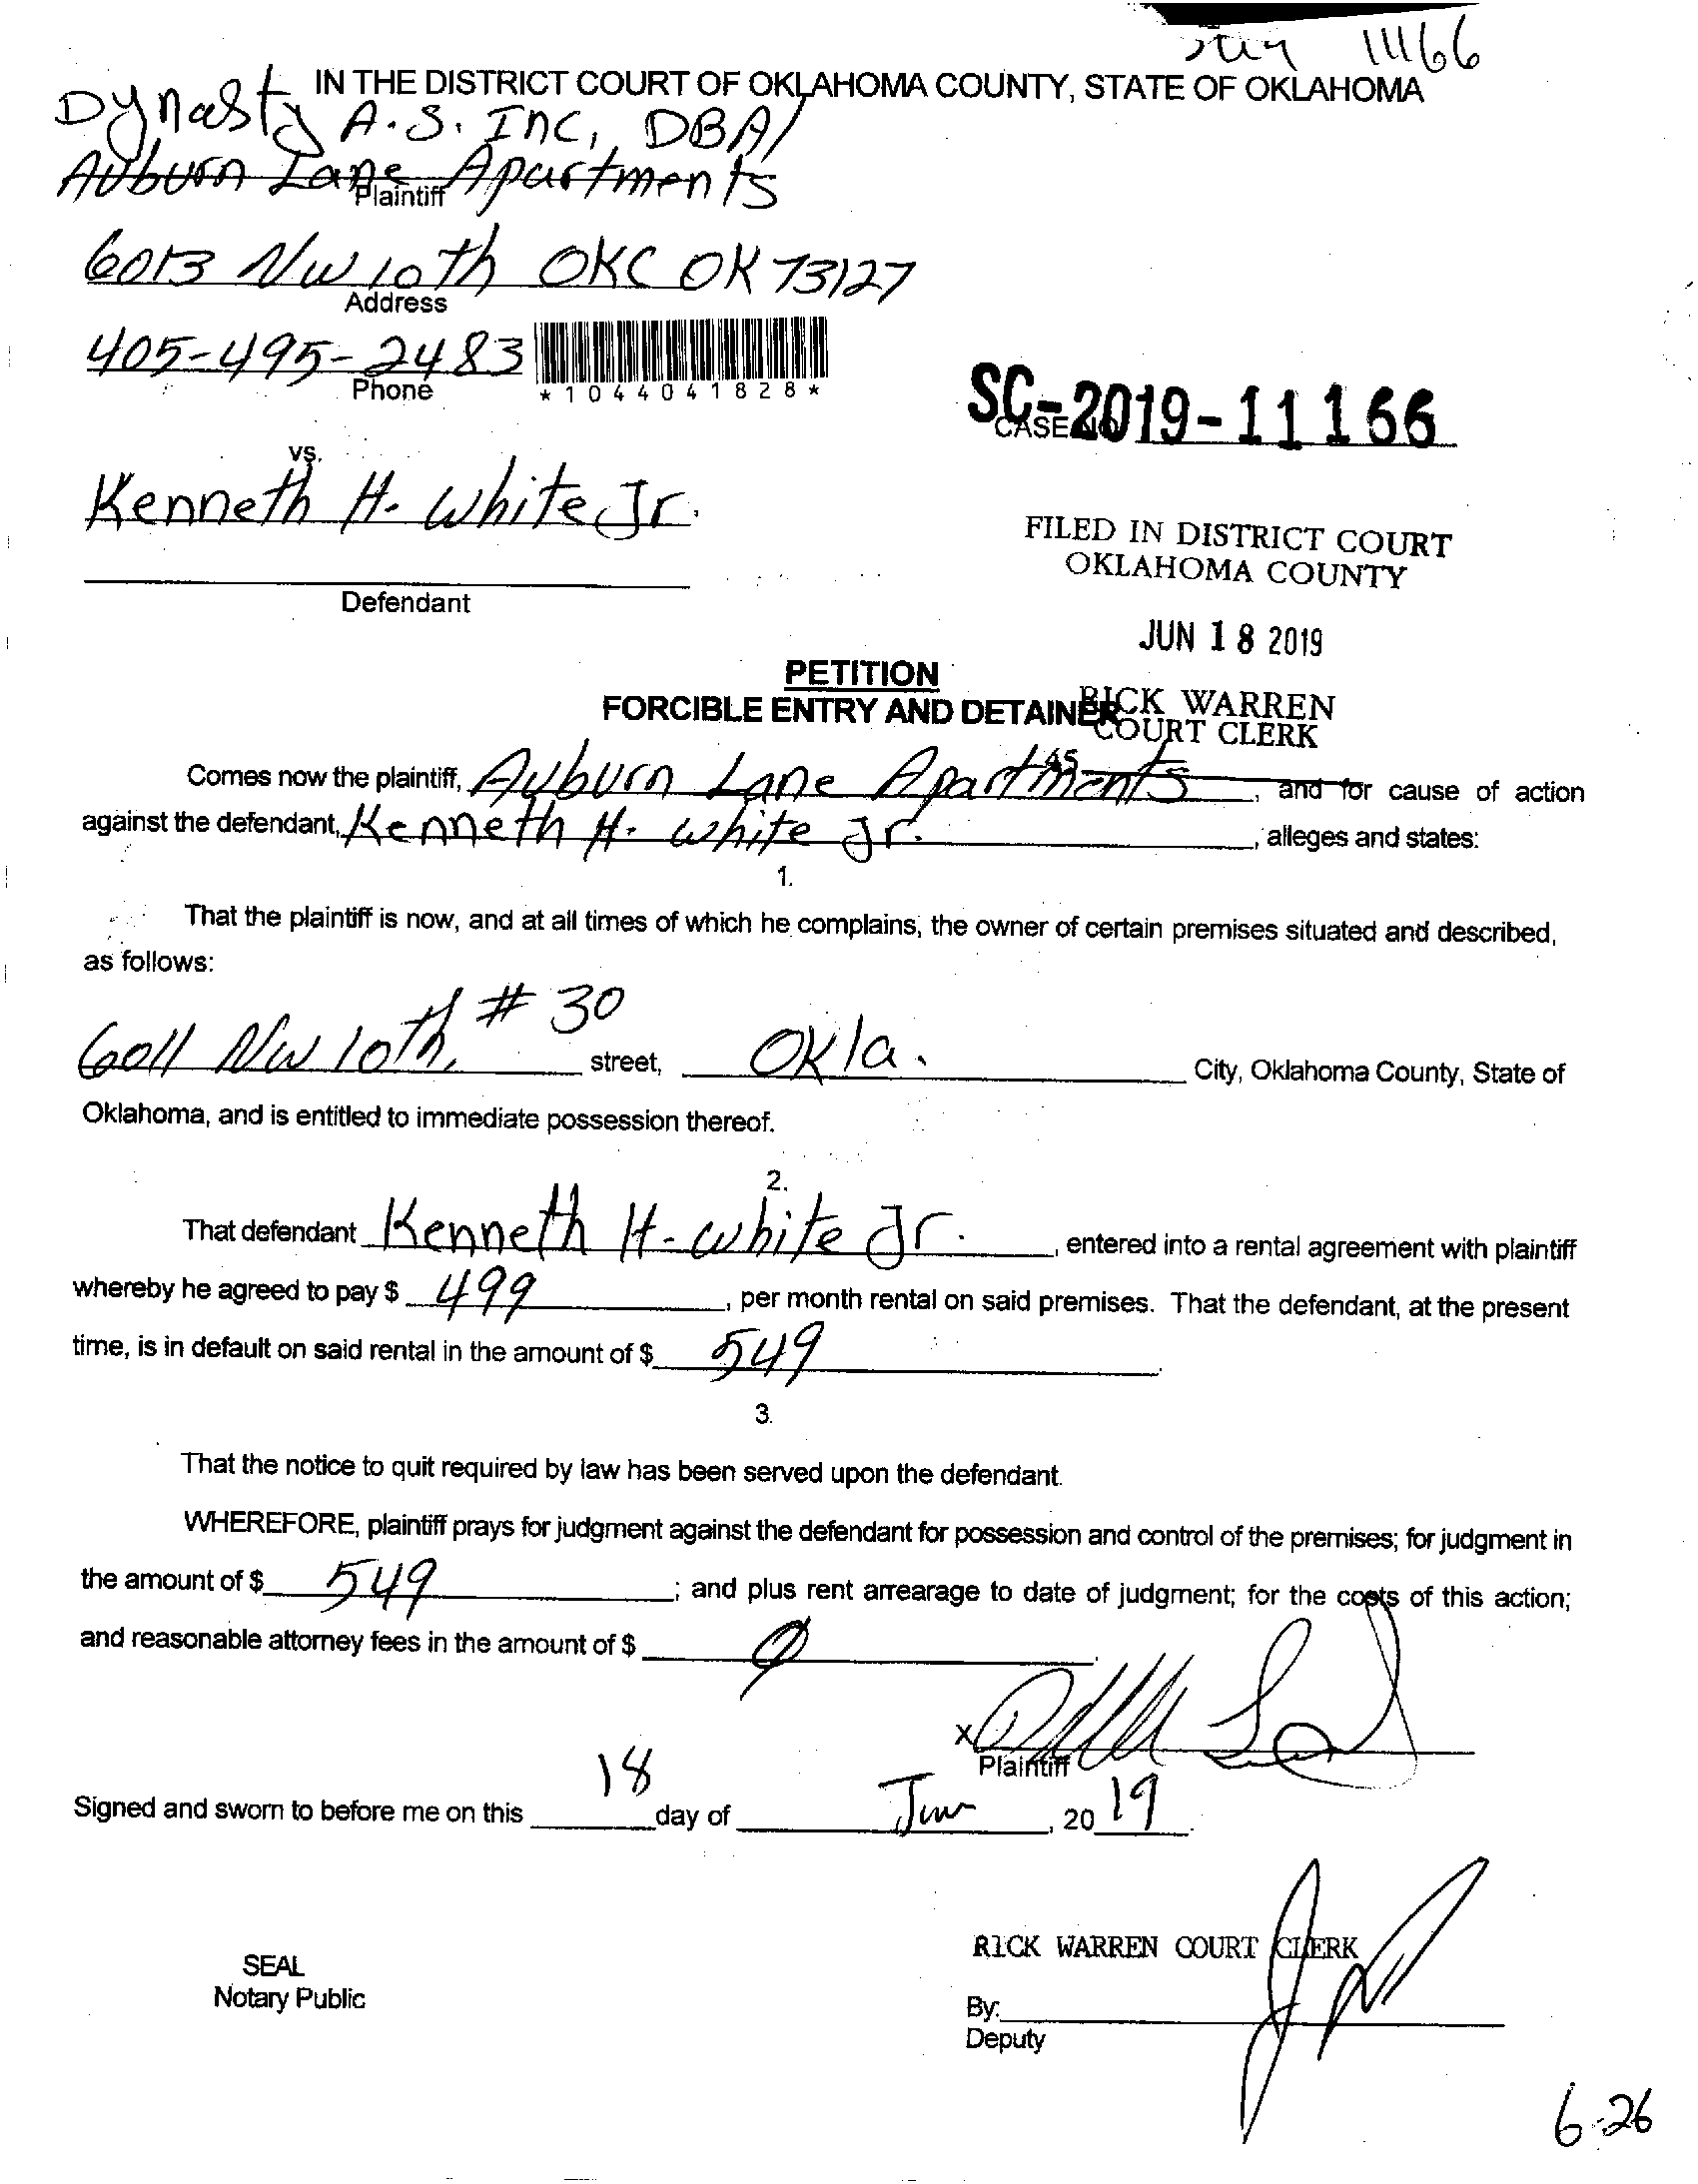 11166
IN THE DISTRICT COURT OF OKLAHOMA COUNTY, STATE OF OKLAHOMA
Dynasty A.S. Inc, DBA/
Auburn Lane Apartments
Plaintiff
6013 NW 10th OKC OK 73127
Address
405-495-2483
Phone
*1044041828*
SC-2019-11166
CASE NO
vs.
Kenneth H. White Jr.
Defendant
FILED IN DISTRICT COURT
OKLAHOMA COUNTY
JUN 18 2019
RICK WARREN
COURT CLERK
PETITION
FORCIBLE ENTRY AND DETAINER
Comes now the plaintiff, Auburn Lane Apartments, and for cause of action
against the defendant, Kenneth H. White Jr., alleges and states:
1.
That the plaintiff is now, and at all times of which he complains, the owner of certain premises situated and described,
as follows:
6011 NW 10th, # 30 street, Okla. City, Oklahoma County, State of
Oklahoma, and is entitled to immediate possession thereof.
2.
That defendant Kenneth H. White Jr., entered into a rental agreement with plaintiff
whereby he agreed to pay $ 499, per month rental on said premises. That the defendant, at the present
time, is in default on said rental in the amount of $ 549.
3.
That the notice to quit required by law has been served upon the defendant.
WHEREFORE, plaintiff prays for judgment against the defendant for possession and control of the premises; for judgment in
the amount of $ 549; and plus rent arrearage to date of judgment; for the costs of this action;
and reasonable attorney fees in the amount of $ Ø.
X
Plaintiff
Signed and sworn to before me on this 18 day of Jun, 20 19.
SEAL
Notary Public
RICK WARREN COURT CLERK
By:
Deputy
6-26